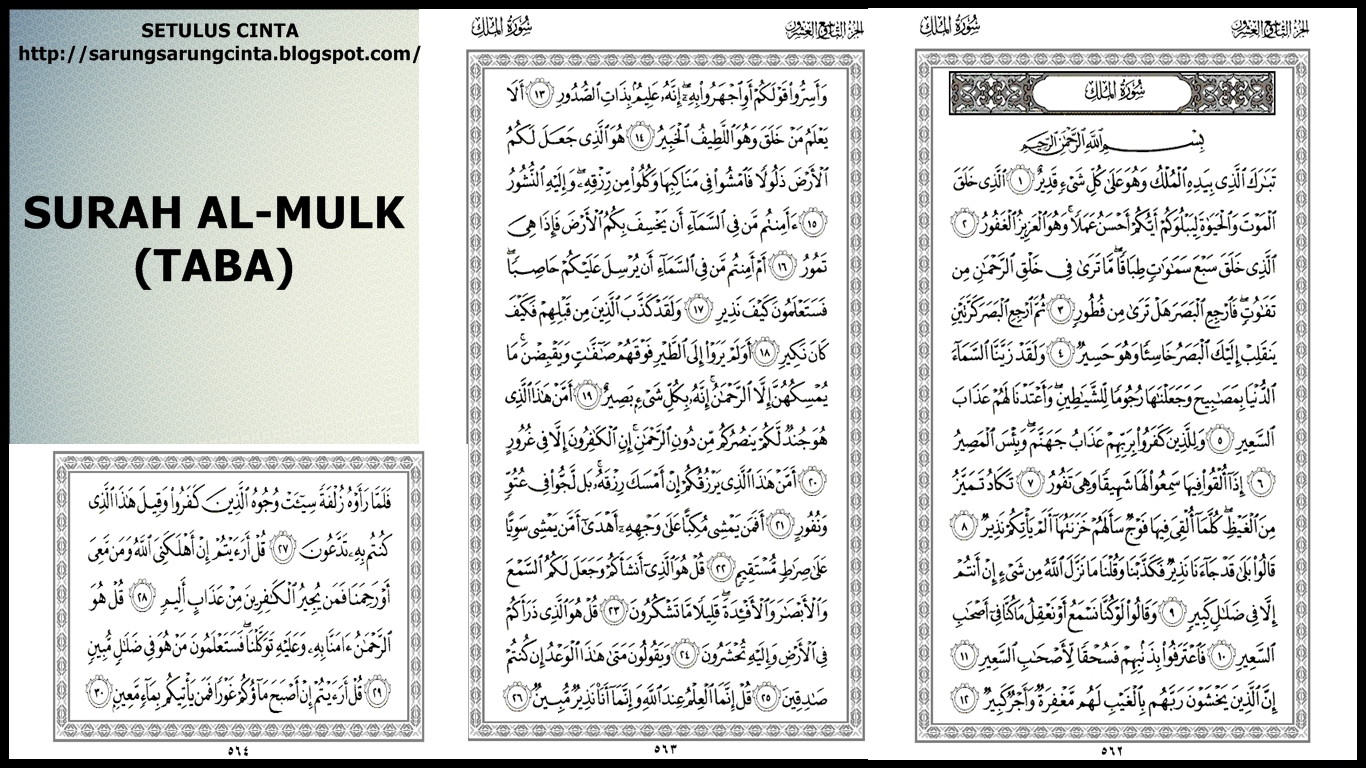 SETULUS CINTA
http://sarungsarungcinta.blogspot.com/
SURAH AL-MULK
(TABA)
سُورَةُ المُلْكِ
الجُزْءُ التَّاسِعُ وَالعِشْرُونَ
سُورَةُ المُلْكِ
بِسْمِ ٱللَّهِ ٱلرَّحْمَٰنِ ٱلرَّحِيمِ
تَبَٰرَكَ ٱلَّذِى بِيَدِهِ ٱلْمُلْكُ وَهُوَ عَلَىٰ كُلِّ شَىْءٍ قَدِيرٌ ١ ٱلَّذِى خَلَقَ
ٱلْمَوْتَ وَٱلْحَيَوٰةَ لِيَبْلُوَكُمْ أَيُّكُمْ أَحْسَنُ عَمَلًا ۚ وَهُوَ ٱلْعَزِيزُ ٱلْغَفُورُ ٢
ٱلَّذِى خَلَقَ سَبْعَ سَمَٰوَٰتٍ طِبَاقًا ۖ مَّا تَرَىٰ فِى خَلْقِ ٱلرَّحْمَٰنِ مِن
تَفَٰوُتٍ ۖ فَٱرْجِعِ ٱلْبَصَرَ هَلْ تَرَىٰ مِن فُطُورٍ ٣ ثُمَّ ٱرْجِعِ ٱلْبَصَرَ كَرَّتَيْنِ
يَنقَلِبْ إِلَيْكَ ٱلْبَصَرُ خَاسِئًا وَهُوَ حَسِيرٌ ٤ وَلَقَدْ زَيَّنَّا ٱلسَّمَآءَ
ٱلدُّنْيَا بِمَصَٰبِيحَ وَجَعَلْنَٰهَا رُجُومًا لِّلشَّيَٰطِينِ ۖ وَأَعْتَدْنَا لَهُمْ عَذَابَ
ٱلسَّعِيرِ ٥ وَلِلَّذِينَ كَفَرُوا۟ بِرَبِّهِمْ عَذَابُ جَهَنَّمَ ۖ وَبِئْسَ ٱلْمَصِيرُ
٦ إِذَآ أُلْقُوا۟ فِيهَا سَمِعُوا۟ لَهَا شَهِيقًا وَهِىَ تَفُورُ ٧ تَكَادُ تَمَيَّزُ
مِنَ ٱلْغَيْظِ ۖ كُلَّمَآ أُلْقِىَ فِيهَا فَوْجٌ سَأَلَهُمْ خَزَنَتُهَآ أَلَمْ يَأْتِكُمْ نَذِيرٌ ٨
قَالُوا۟ بَلَىٰ قَدْ جَآءَنَا نَذِيرٌ فَكَذَّبْنَا وَقُلْنَا مَا نَزَّلَ ٱللَّهُ مِن شَىْءٍ إِنْ أَنتُمْ
إِلَّا فِى ضَلَٰلٍ كَبِيرٍ ٩ وَقَالُوا۟ لَوْ كُنَّا نَسْمَعُ أَوْ نَعْقِلُ مَا كُنَّا فِىٓ أَصْحَٰبِ
ٱلسَّعِيرِ ١٠ فَٱعْتَرَفُوا۟ بِذَنۢبِهِمْ فَسُحْقًا لِّأَصْحَٰبِ ٱلسَّعِيرِ ١١
إِنَّ ٱلَّذِينَ يَخْشَوْنَ رَبَّهُم بِٱلْغَيْبِ لَهُم مَّغْفِرَةٌ وَأَجْرٌ كَبِيرٌ ١٢
٥٦٢
سُورَةُ المُلْكِ
الجُزْءُ التَّاسِعُ وَالعِشْرُونَ
وَأَسِرُّوا۟ قَوْلَكُمْ أَوِ ٱجْهَرُوا۟ بِهِۦٓ ۖ إِنَّهُۥ عَلِيمٌۢ بِذَاتِ ٱلصُّدُورِ ١٣ أَلَا
يَعْلَمُ مَنْ خَلَقَ وَهُوَ ٱللَّطِيفُ ٱلْخَبِيرُ ١٤ هُوَ ٱلَّذِى جَعَلَ لَكُمُ
ٱلْأَرْضَ ذَلُولًا فَٱمْشُوا۟ فِى مَنَاكِبِهَا وَكُلُوا۟ مِن رِّزْقِهِۦ ۖ وَإِلَيْهِ ٱلنُّشُورُ
١٥ ءَأَمِنتُم مَّن فِى ٱلسَّمَآءِ أَن يَخْسِفَ بِكُمُ ٱلْأَرْضَ فَإِذَا هِىَ
تَمُورُ ١٦ أَمْ أَمِنتُم مَّن فِى ٱلسَّمَآءِ أَن يُرْسِلَ عَلَيْكُمْ حَاصِبًا ۖ
فَسَتَعْلَمُونَ كَيْفَ نَذِيرِ ١٧ وَلَقَدْ كَذَّبَ ٱلَّذِينَ مِن قَبْلِهِمْ فَكَيْفَ
كَانَ نَكِيرِ ١٨ أَوَلَمْ يَرَوْا۟ إِلَى ٱلطَّيْرِ فَوْقَهُمْ صَٰٓفَّٰتٍ وَيَقْبِضْنَ ۚ مَا
يُمْسِكُهُنَّ إِلَّا ٱلرَّحْمَٰنُ ۚ إِنَّهُۥ بِكُلِّ شَىْءٍۭ بَصِيرٌ ١٩ أَمَّنْ هَٰذَا ٱلَّذِى
هُوَ جُندٌ لَّكُمْ يَنصُرُكُم مِّن دُونِ ٱلرَّحْمَٰنِ ۚ إِنِ ٱلْكَٰفِرُونَ إِلَّا فِى غُرُورٍ
٢٠ أَمَّنْ هَٰذَا ٱلَّذِى يَرْزُقُكُمْ إِنْ أَمْسَكَ رِزْقَهُۥ ۚ بَل لَّجُّوا۟ فِى عُتُوٍّ
وَنُفُورٍ ٢١ أَفَمَن يَمْشِى مُكِبًّا عَلَىٰ وَجْهِهِۦٓ أَهْدَىٰٓ أَمَّن يَمْشِى سَوِيًّا
عَلَىٰ صِرَٰطٍ مُّسْتَقِيمٍ ٢٢ قُلْ هُوَ ٱلَّذِىٓ أَنشَأَكُمْ وَجَعَلَ لَكُمُ ٱلسَّمْعَ
وَٱلْأَبْصَٰرَ وَٱلْأَفْـِٔدَةَ ۖ قَلِيلًا مَّا تَشْكُرُونَ ٢٣ قُلْ هُوَ ٱلَّذِى ذَرَأَكُمْ
فِى ٱلْأَرْضِ وَإِلَيْهِ تُحْشَرُونَ ٢٤ وَيَقُولُونَ مَتَىٰ هَٰذَا ٱلْوَعْدُ إِن كُنتُمْ
صَٰدِقِينَ ٢٥ قُلْ إِنَّمَا ٱلْعِلْمُ عِندَ ٱللَّهِ وَإِنَّمَآ أَنَا۠ نَذِيرٌ مُّبِينٌ ٢٦
٥٦٣
فَلَمَّا رَأَوْهُ زُلْفَةً سِيٓـَٔتْ وُجُوهُ ٱلَّذِينَ كَفَرُوا۟ وَقِيلَ هَٰذَا ٱلَّذِى
كُنتُم بِهِۦ تَدَّعُونَ ٢٧ قُلْ أَرَءَيْتُمْ إِنْ أَهْلَكَنِىَ ٱللَّهُ وَمَن مَّعِىَ
أَوْ رَحِمَنَا فَمَن يُجِيرُ ٱلْكَٰفِرِينَ مِنْ عَذَابٍ أَلِيمٍ ٢٨ قُلْ هُوَ
ٱلرَّحْمَٰنُ ءَامَنَّا بِهِۦ وَعَلَيْهِ تَوَكَّلْنَا ۖ فَسَتَعْلَمُونَ مَنْ هُوَ فِى ضَلَٰلٍ مُّبِينٍ
٢٩ قُلْ أَرَءَيْتُمْ إِنْ أَصْبَحَ مَآؤُكُمْ غَوْرًا فَمَن يَأْتِيكُم بِمَآءٍ مَّعِينٍۭ ٣٠
٥٦٤